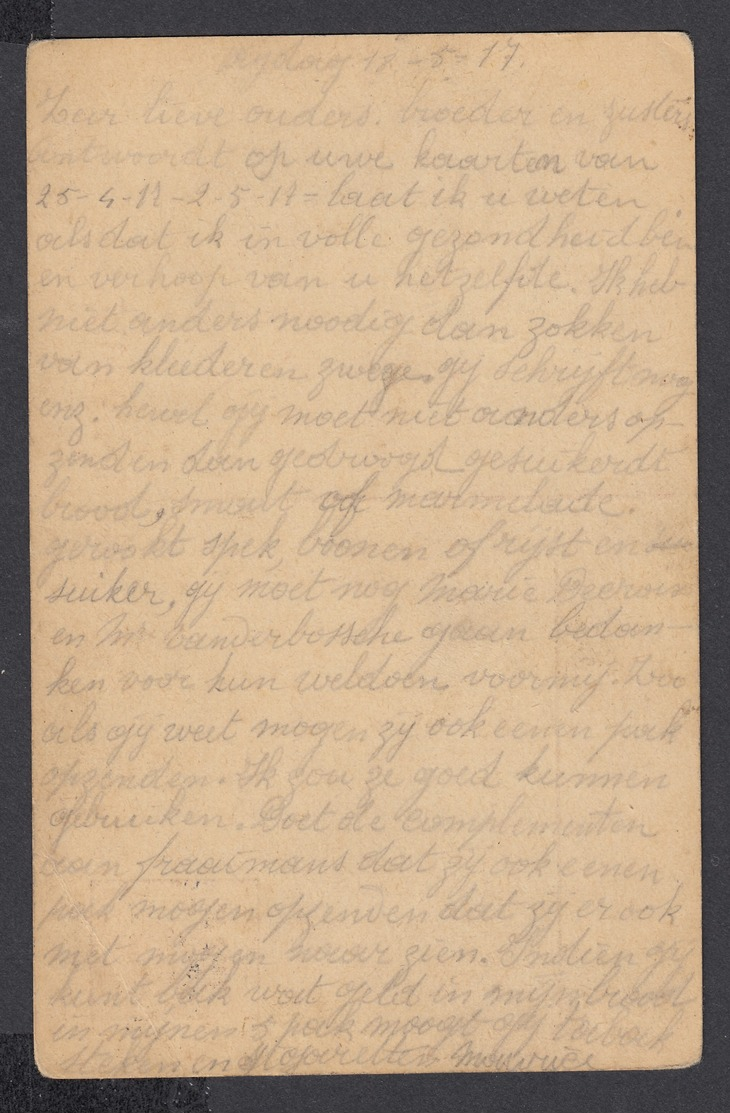 vrydag 18-5-17.
Zeer lieve ouders. broeder en zusters
antwoordt op uwe kaarten van
25-4-17-2-5-17= laat ik u weten
alsdat ik in volle gezondheid ben
en verhoop van u hetzelfde. Ik heb
niet anders noodig dan zokken
van kleederen zwege. gy schryft nog
enz. hewel gy moet niet aanders op-
zenden dan gedroogd gesuikerdt
brood, smout of marmelade.
gerookt spek, boonen of ryst en
suiker, gy moet nog Marie
en Mr Vanderbossche gaan bedan-
ken voor hun weldoen voor mij. Zoo
als gÿ weet mogen zÿ ook eenen pak
opzenden. Ik zou ze goed kunnen
gebruiken. Doet de complementen
aan fraaimans dat zÿ ook eenen
pak moogen opzenden dat zÿ er ook
met mogen naar zien. Indien gÿ
kunt wat geld in mÿn brood
in mynen 5 pak moogt gÿ tabak
steken en sigaretten Maurice